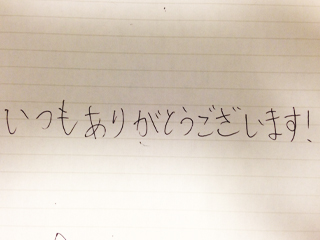 いつもありがとうございます!